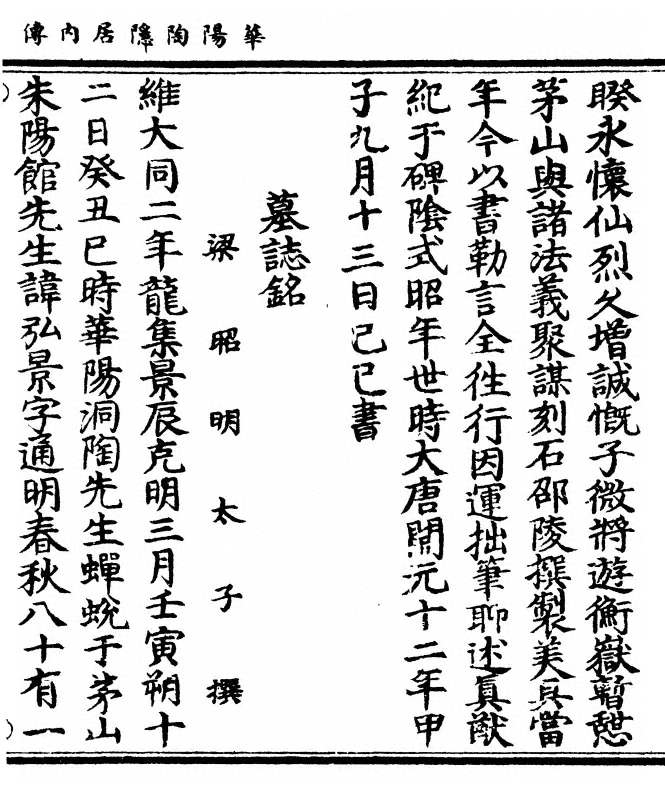 華陽陶隱居內傳
睽永懷仙烈久增誠慨子微將遊衡嶽暫憩
茅山與諸法義聚謀刻石邵陵撰製美具當
年今以書勒言全徃行因運拙筆聊述眞猷
紀于碑陰式昭年世時大唐開元十二年甲
子九月十三日己巳書
墓誌銘
梁昭明太子撰
維大同二年龍集景辰克明三月壬寅朔十
二日癸丑巳時華陽洞陶先生蟬蛻于茅山
朱陽館先生諱弘景字通明春秋八十有一